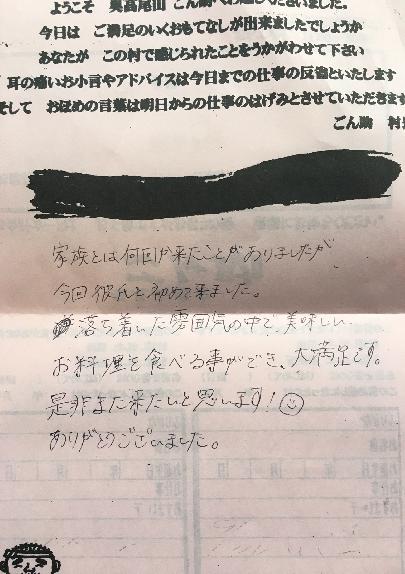 ようこそ 奥高尾山 ごん助へお越しくださいました。
今日は ご満足のいくおもてなしが出来ましたでしょうか
あなたが この村で感じられたことをうかがわせて下さい
耳の痛いお小言やアドバイスは今日までの仕事の反省といたします
そして おほめの言葉は明日からの仕事のはげみとさせていただきます
ごん助 村長
家族とは何回か来たことがありましたが
今回彼氏と初めて来ました。
落ち着いた雰囲気の中で、美味しい
お料理を食べる事ができ、大満足です。
是非また来たいと思います!
ありがとうございました。